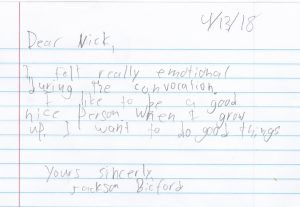 4/13/18
Dear Nick,
I felt really emotional
during the convocation.
I like to be a good
nice person when I grow
up. I want to do good things
Yours sincerly
Jackson Bicford